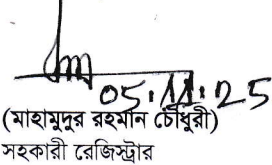 05.11.25
(মাহামুদুর রহমান চৌধুরী)
সহকারী রেজিস্ট্রার